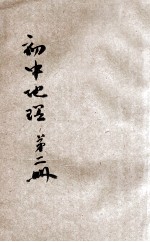 初中地理第二册